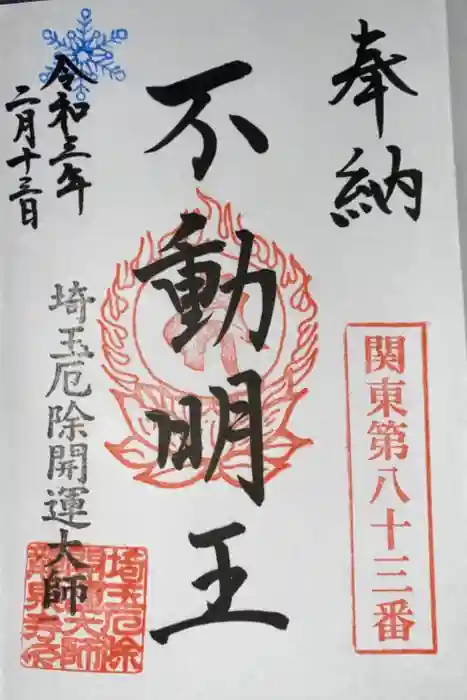 奉納
関東第八十三番
不動明王
令和三年
二月十三日
埼玉厄除開運大師
埼玉厄除
開運大師
龍泉寺印